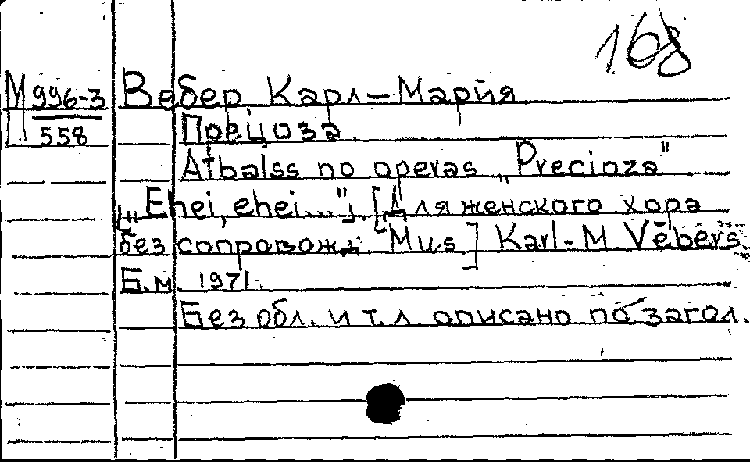 168
М 996-3 Вебер Карл-Мария
П 558 Прециоза.
Atbalss no operas „Precioza"
„Ehei, ehei..."; [Для женского хора
без сопровожд. Mus.] Karl-M Vēbers
Б.м. 1971.
Без обл. и т.л. описано по загол.